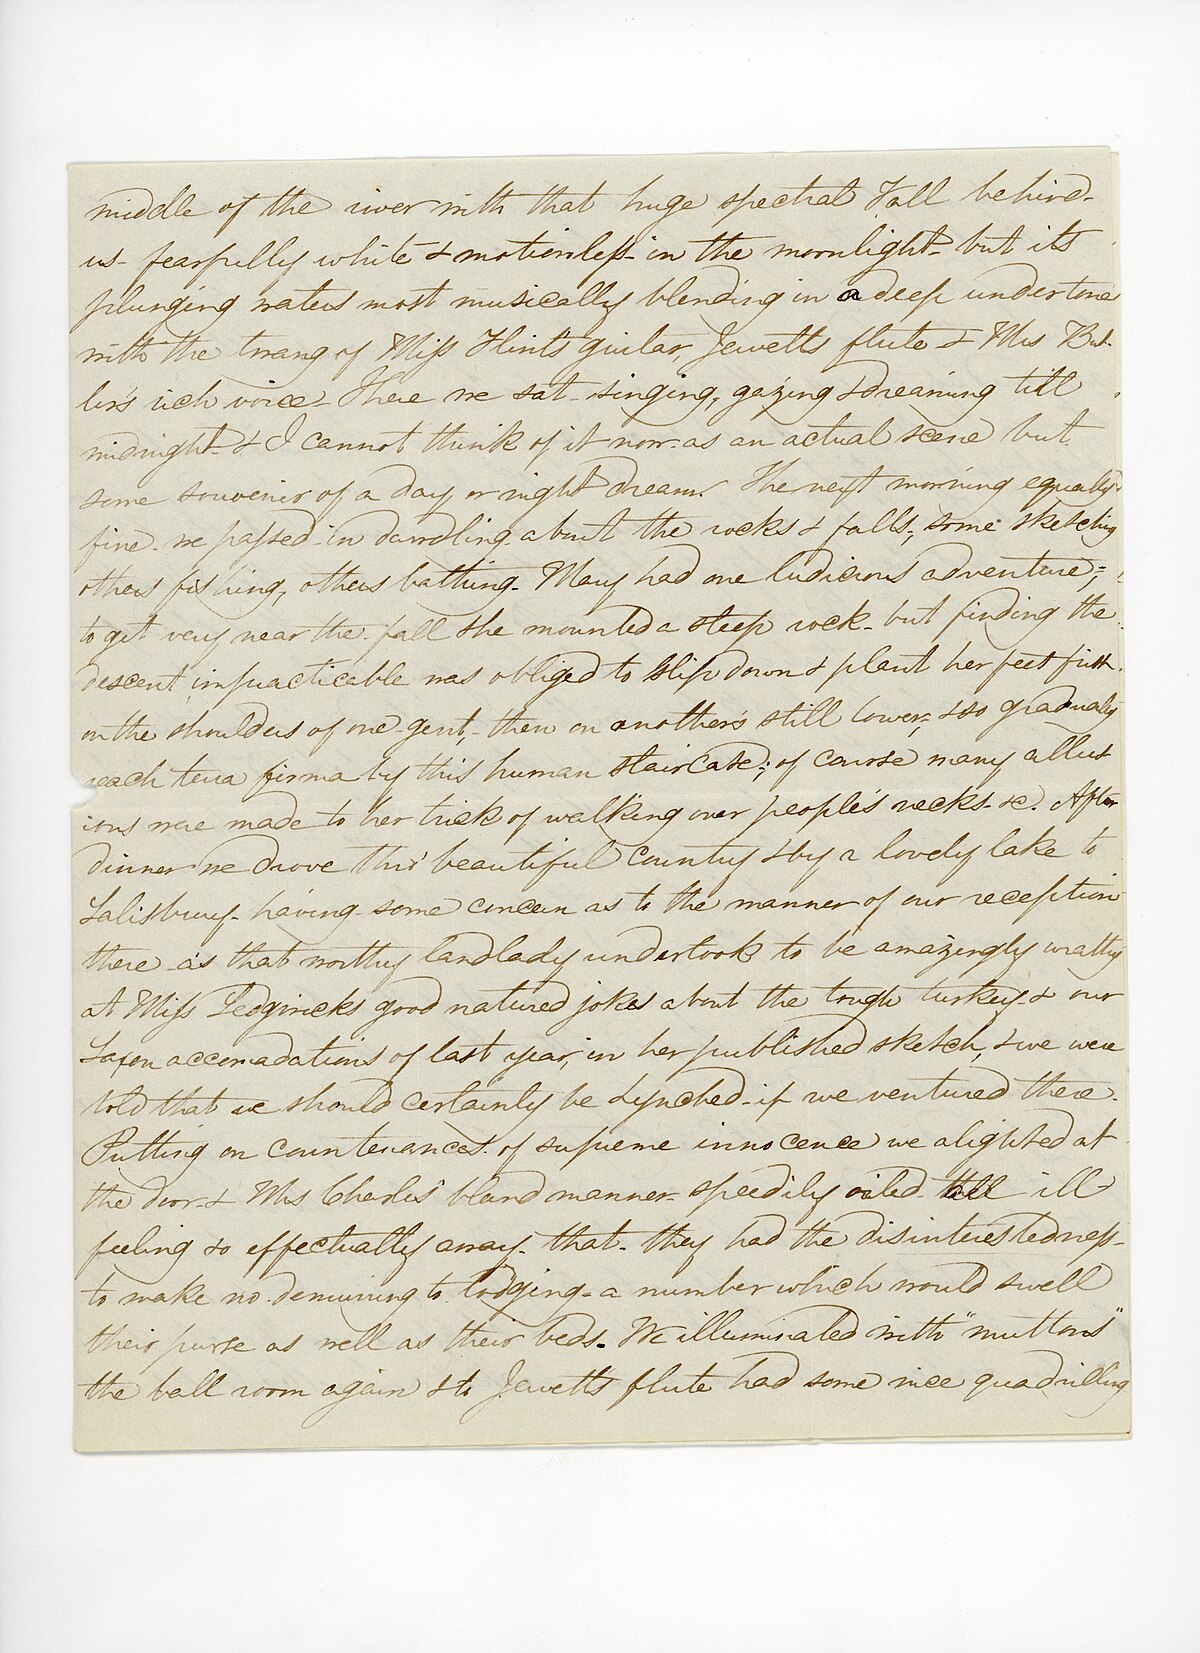 middle of the river with that huge spectral Fall behind-
us- fearfully white & motionless- in the moonlight- but its
plunging waters most musically blending in a deep undertone
with the twang of Miss Flint's guitar, Jewetts flute & Mrs But-
lers rich voice- There we sat- singing, gazing & dreaming till
midnight- & I cannot think of it now- as an actual scene but
some souvenir of a day or night dream. The next morning equally
fine- we passed in dawdling about the rocks & falls, some sketching
others fishing, others bathing- Mary had one ludicrous adventure;
to get very near the fall she mounted a steep rock- but finding the
descent impracticable was obliged to slip down & plant her feet first
on the shoulders of one gent,- then on another's still lower, & so gradually
reach terra firma by this human staircase; of course many allus
ions were made to her trick of walking over people's necks- &c. After
dinner we drove thro' beautiful country & by a lovely lake to
Salisbury- having some concern as to the manner of our reception
there as that worthy landlady undertook to be amazingly wrathy
at Miss Sedgwicks good natured jokes about the tough turkey & our
Saxon accomadations of last year, in her published sketch, & we were
told that we should certainly be Lynched- if we ventured there.
Putting on countenances of supreme innocence we alighted at
the door- & Mrs Charles' bland manner- speedily oiled all ill
feeling so effectually away- that- they had the disinterestedness-
to make no demurring to lodging- a number which would swell
their purse as well as their beds- We illuminated with "muttons"
the ball room again & to Jewetts flute had some nice quadrilling